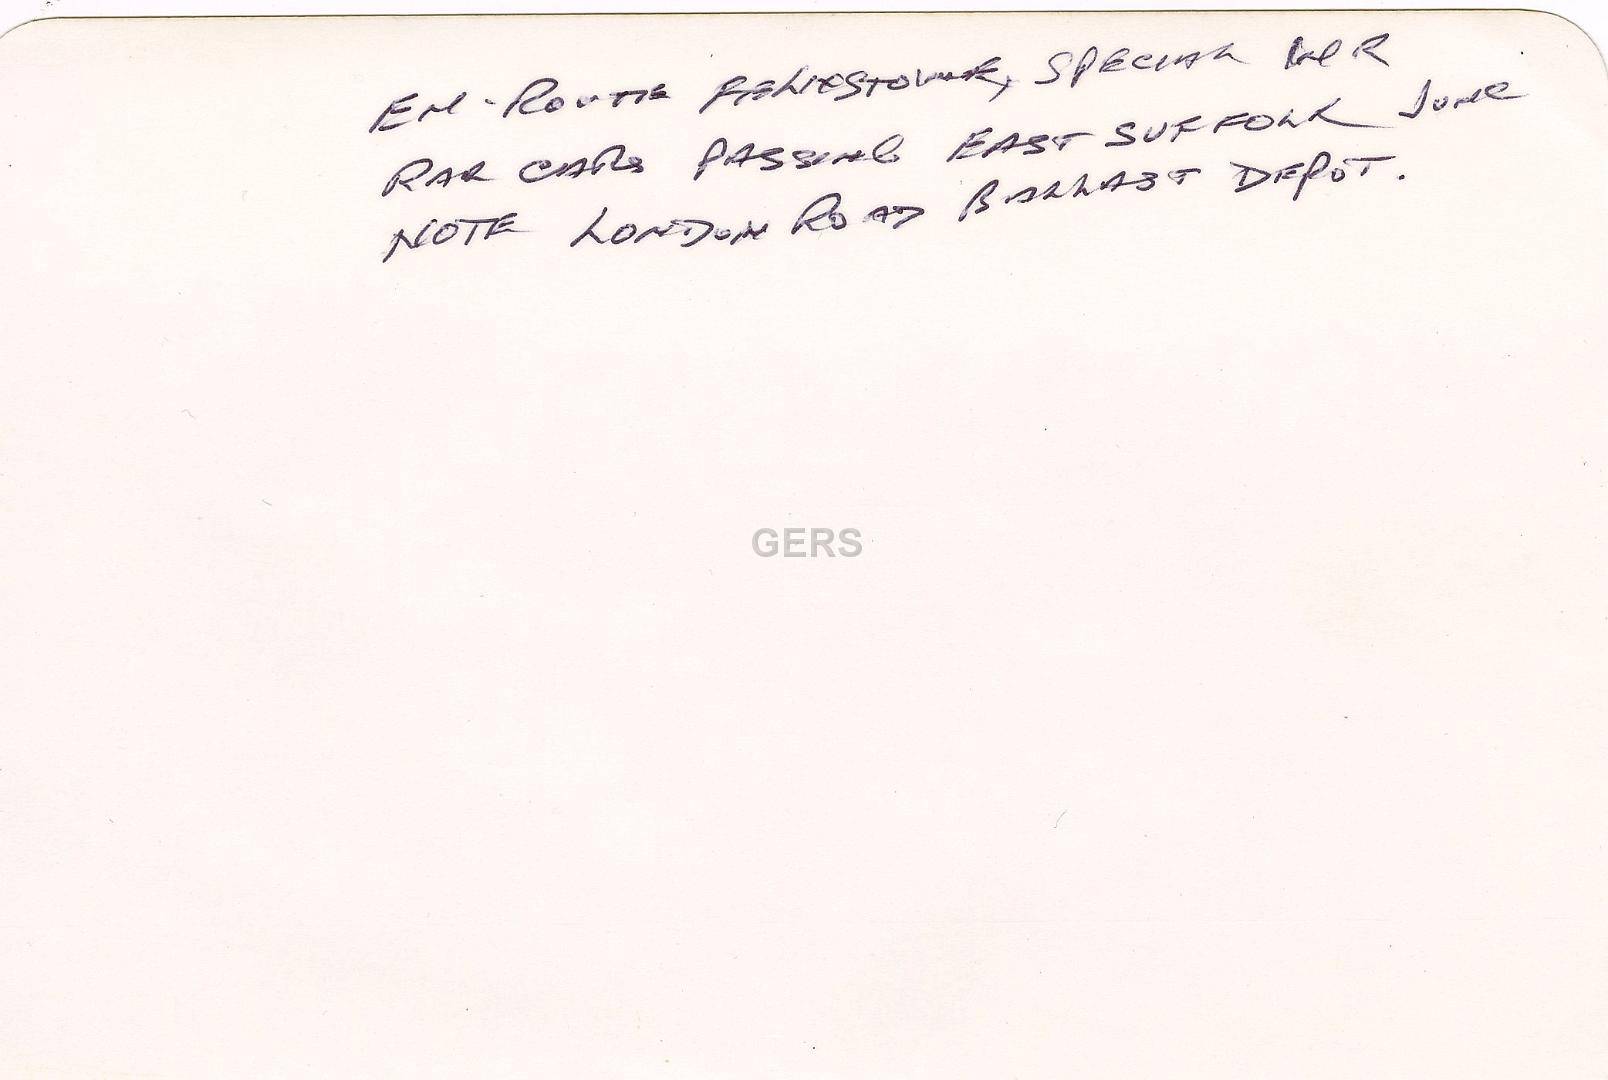 EN-ROUTE FELIXSTOWE, SPECIAL
CARS PASSING EAST SUFFOLK JUNC
NOTE LONDON ROAD BALLAST DEPOT.
GERS